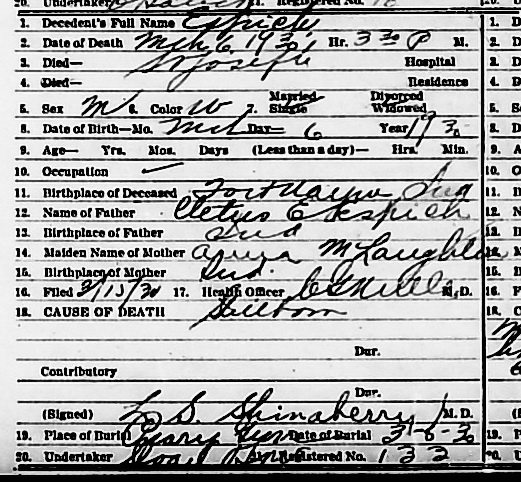 20. Undertaker 21. Registered No.
1. Decedent's Full Name Espich
2. Date of Death Mch 6 1930 Hr. 3 30 P M.
3. Died— St Joseph Hospital
4. Died— Residence
5. Sex M 6. Color W 7. Married Single Divorced Widowed
8. Date of Birth—Mo. Mch Day 6 Year 1930
9. Age— Yrs. Mos. Days (Less than a day)— Hrs. Min.
10. Occupation
11. Birthplace of Deceased Fort Wayne Ind
12. Name of Father Cletus E Espich
13. Birthplace of Father Ind
14. Maiden Name of Mother McLaughlin
15. Birthplace of Mother Ind.
16. Filed 3/15/30 17. Health Officer M.D.
18. CAUSE OF DEATH Stillborn
Dur.
Contributory
Dur.
(Signed) L. S. Shinaberry M. D.
19. Place of Burial Date of Burial 3-6-30
20. Undertaker 21. Registered No. 133